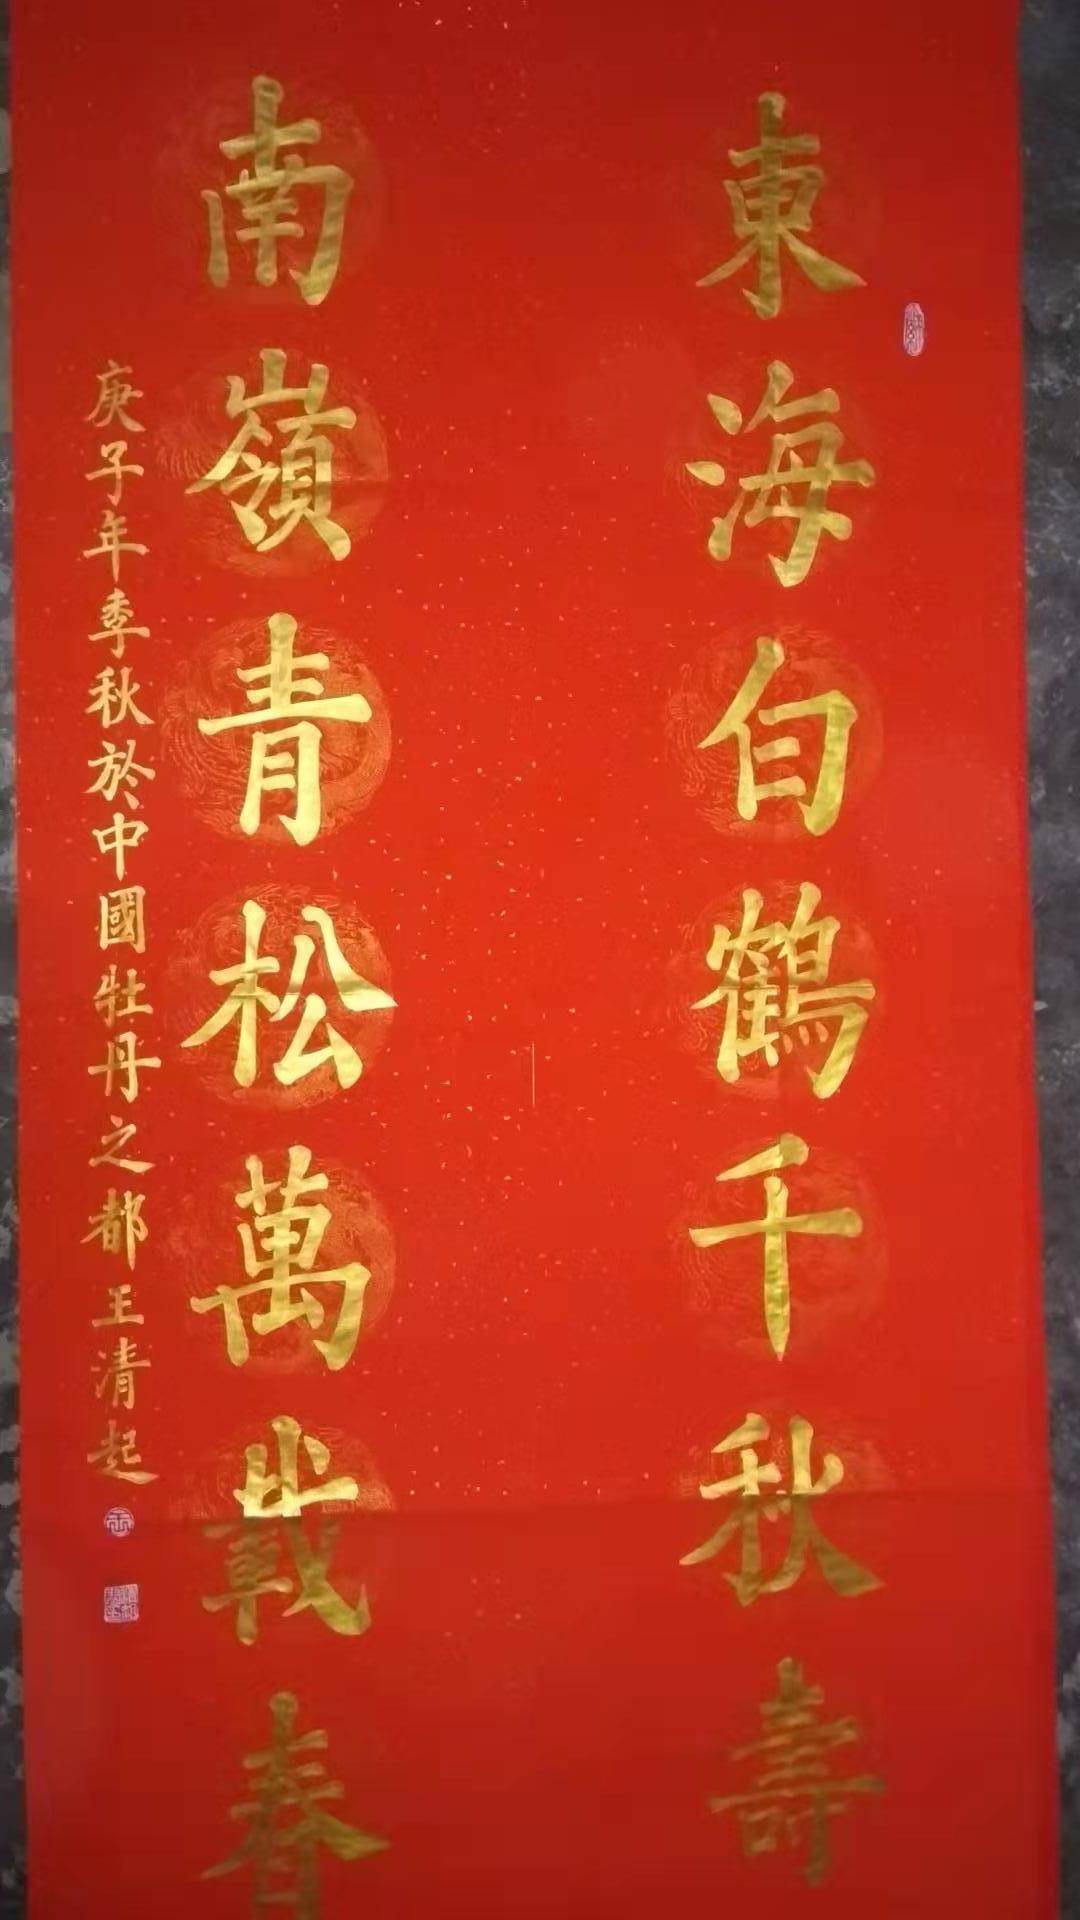 東海白鶴千秋壽
南嶺青松萬載春
庚子年季秋於中國牡丹之都王清起